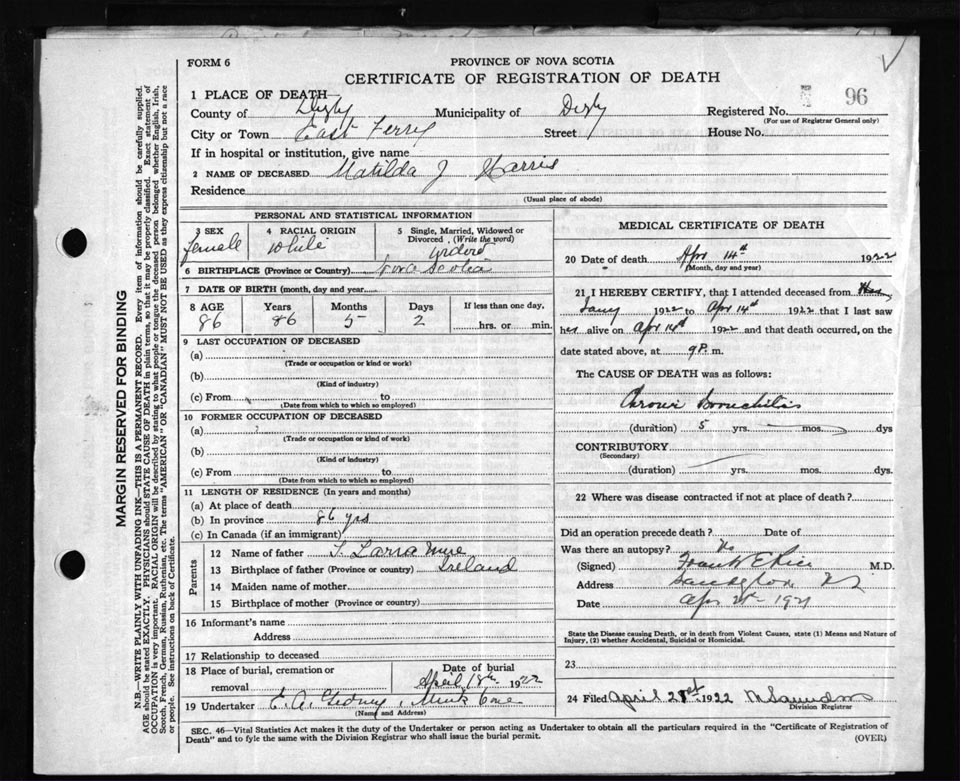 FORM 6
PROVINCE OF NOVA SCOTIA
CERTIFICATE OF REGISTRATION OF DEATH
96
1 PLACE OF DEATH—
County of Digby Municipality of Digby Registered No.
(For use of Registrar General only)
City or Town East Ferry Street House No.
If in hospital or institution, give name
2 NAME OF DECEASED Matilda J Harris
Residence
(Usual place of abode)
PERSONAL AND STATISTICAL INFORMATION
3 SEX
female
4 RACIAL ORIGIN
White
5 Single, Married, Widowed or
Divorced, (Write the word)
widow
6 BIRTHPLACE (Province or Country) Nova Scotia
7 DATE OF BIRTH (month, day and year)
8 AGE Years Months Days If less than one day,
86 86 5 2 hrs. or min.
9 LAST OCCUPATION OF DECEASED
(a)
(Trade or occupation or kind or work)
(b)
(Kind of industry)
(c) From to
(Date from which to which so employed)
10 FORMER OCCUPATION OF DECEASED
(a)
(Trade or occupation or kind of work)
(b)
(Kind of industry)
(c) From to
(Date from which to which so employed)
11 LENGTH OF RESIDENCE (In years and months)
(a) At place of death
(b) In province 86 yrs
(c) In Canada (if an immigrant)
Parents
12 Name of father
13 Birthplace of father (Province or country) Ireland
14 Maiden name of mother
15 Birthplace of mother (Province or country)
16 Informant's name
Address
17 Relationship to deceased
18 Place of burial, cremation or
removal
Date of burial
April 18th 1922
19 Undertaker E. A. Gidney, Mink Cove
(Name and Address)
MEDICAL CERTIFICATE OF DEATH
20 Date of death Apr 14th 1922
(Month, day and year)
21 I HEREBY CERTIFY, that I attended deceased from
1922 to Apr 14th 1922 that I last saw
her alive on Apr 14th 1922 and that death occurred, on the
date stated above, at 9 P. m.
The CAUSE OF DEATH was as follows:
Chronic Bronchitis
(duration) 5 yrs. mos. dys
CONTRIBUTORY
(Secondary)
(duration) yrs. mos. dys.
22 Where was disease contracted if not at place of death?
Did an operation precede death? Date of
Was there an autopsy? No
(Signed) Frank E Rice M.D.
Address Sandy Cove NS
Date Apr
State the Disease causing Death, or in death from Violent Causes, state (1) Means and Nature of
Injury, (2) whether Accidental, Suicidal or Homicidal.
23
24 Filed April 21st 1922
Division Registrar
SEC. 46—Vital Statistics Act makes it the duty of the Undertaker or person acting as Undertaker to obtain all the particulars required in the "Certificate of Registration of
Death" and to fyle the same with the Division Registrar who shall issue the burial permit.
(OVER)
MARGIN RESERVED FOR BINDING
N.B.—WRITE PLAINLY WITH UNFADING INK—THIS IS A PERMANENT RECORD. Every item of information should be carefully supplied.
AGE should be stated EXACTLY. PHYSICIANS should STATE CAUSE OF DEATH in plain terms, so that it may be properly classified. Exact statement of
OCCUPATION is very important. RACIAL ORIGIN will be described by stating to what people or tongue the deceased person belonged whether English, Irish,
Scotch, French, German, Russian, Ruthenian, etc. The terms "AMERICAN" OR "CANADIAN" MUST NOT BE USED as they express citizenship but not a race
or people. See instructions on back of Certificate.